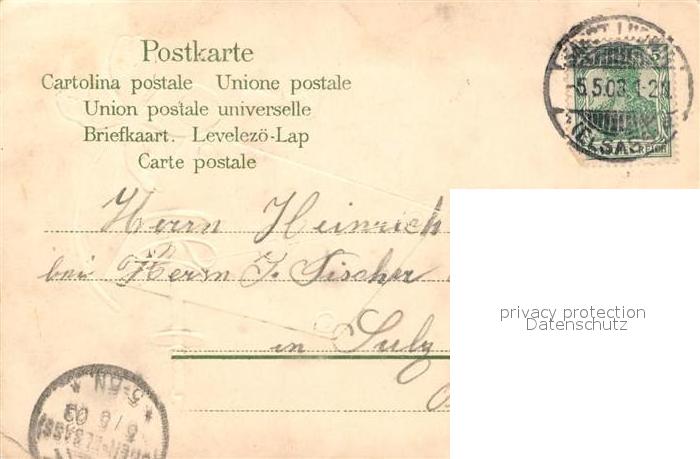 Postkarte
Cartolina postale Unione postale
Union postale universelle
Briefkaart. - Levelezö-Lap
Carte postale
ST. LUDWIG
-5.5.03. 1-2N
(ELSASS)
Herrn Heinrich
bei Herrn J. Fischer
in Sulz
privacy protection
Datenschutz
5-6N
5/5 03
(OBER-ELSASS)